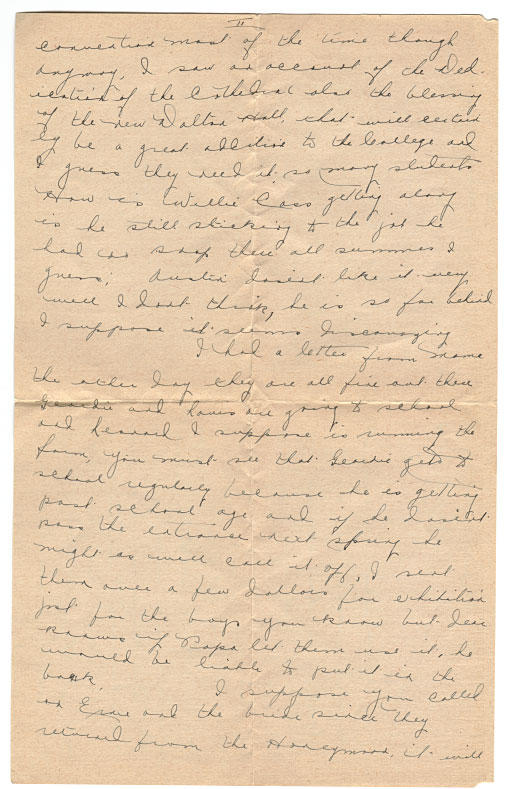 II
convention most of the time though
anyway, I saw an account of the Ded-
ication of the Cathedral also the blessing
of the new Dalton Hall, that will certain
ly be a great addition to the College and
I guess they need it so many students
How is Wallie Cass getting along
is he still sticking to the job he
had no snap there all summer I
guess, Austin doesnt like it very
well I dont think, he is so far behind
I suppose it seems discouraging
I had a letter from Mame
the other day they are all fine out there
Geordie and are going to school
and Leonard I suppose is running the
farm, you must see that Geordie gets to
school regularly because he is getting
past school age and if he doesnt
pass the entrance next spring he
might as well call it off, I sent
them over a few dollars for exhibition
just for the boys you know but dear
knows if Papa let them use it, he
would be liable to put it in the
bank. I suppose you called
on and the bride since they
returned from the Honeymoon, it will